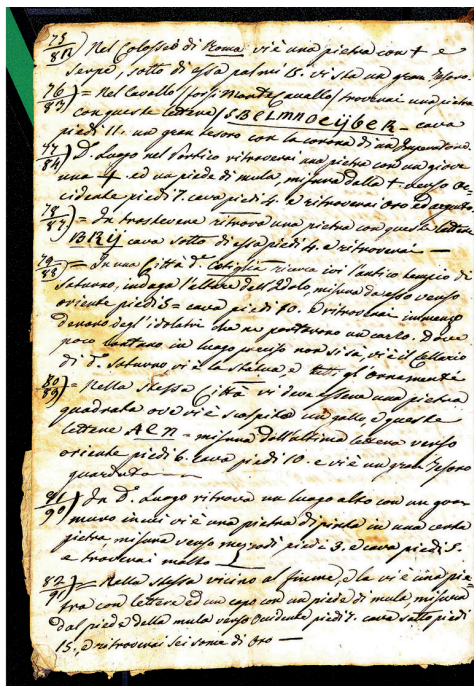 75
82) Nel Colosseo di Roma vi è una pietra con † e
serpe, sotto di essa palmi 15. vi sta un gran tesoro.
76
83) = Nel Cavallo / forsi Monte Cavallo / troverai una pietra
con queste lettere / SBELMNOEIJBER - cava
piedi 11. un gran tesoro con la corona di un Imperadore.
77
84) D.° Luogo nel Portico ritroverai una pietra con un giove
una † ed un piede di mula, misura dalla † verso oc
cidente piedi 7. cava piedi 4. e ritroverai oro ed argento.
78
87) = In trastevere ritrova una pietra con queste lettere
BRIJ cava sotto di essa piedi 4. e ritroverai —
79
88) = In una Città d.ª ricerca ivi l'antico tempio di
Saturno, indaga l'altare dell'Idolo, misura da esso verso
oriente piedi 5 = cava piedi 10. e ritroverai immenso
denaro degl'idolatri che ne portavono un carlo. dove
poco lontano in luogo preciso non si sa, vi è il
di d.° Saturno vi è la statua e tutti gl'ornamenti
80
89) = Nella stessa Città vi deve essere una pietra
quadrata ove vi è scolpito un gallo, e queste
lettere AEN - misura dall'ultima lettera verso
oriente piedi 6. cava piedi 10. e vi è un gran tesoro
guardato —
81
90) In D.° Luogo ritrova un luogo alto con un gran
muro in cui vi è una pietra dipinta in una certa
pietra, misura verso mezzodì piedi 3. e cava piedi 5.
e troverai molto
82
91) = Nella stessa vicino al fiume, e la vi è una pie
tra con lettere ed un capo con un piede di mula, misura
dal piede della mula verso occidente piedi 7. cava sotto piedi
15. e ritroverai sei some di oro —